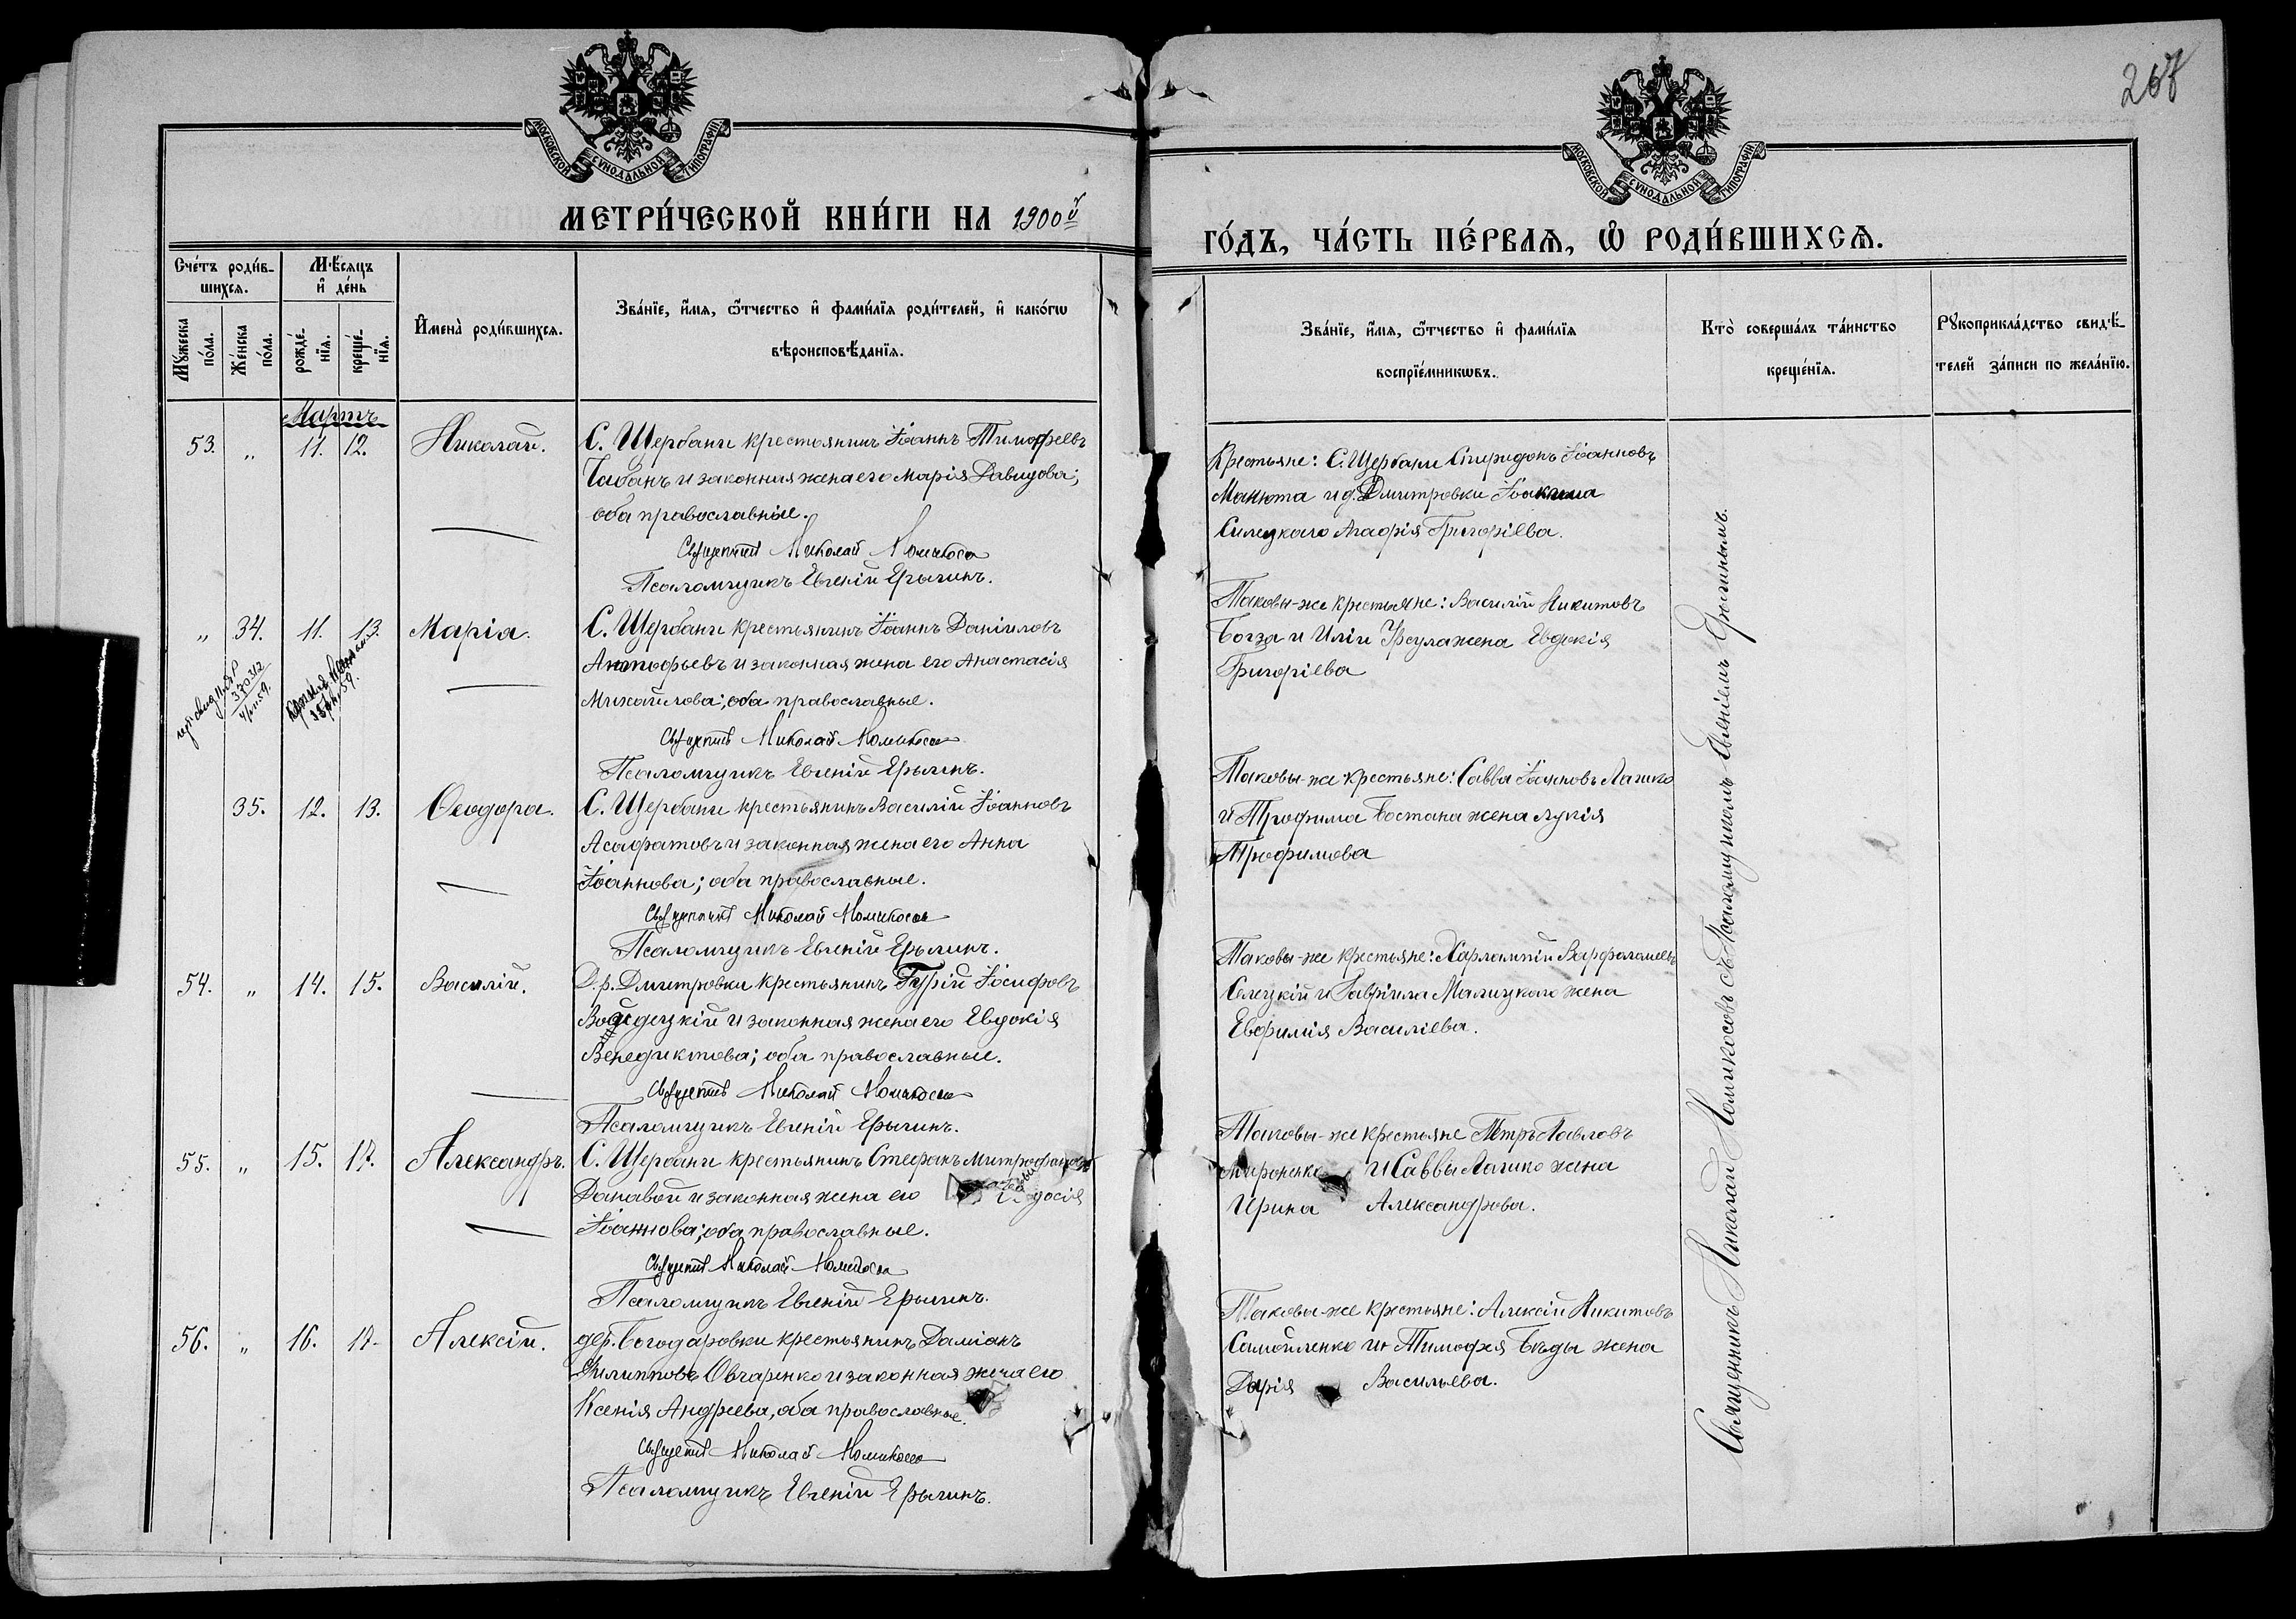 267
МОСКОВСКОЙ СУНОДАЛЬНОЙ ТИПОГРАФІИ
МОСКОВСКОЙ СУНОДАЛЬНОЙ ТИПОГРАФІИ
МЕТРИ́ЧЕСКОЙ КНИ́ГИ НА 1900й
ГО́ДЪ, ЧА́СТЬ ПЕ́РВАѦ, Ѡ҆ РОДИ́ВШИХСѦ.
Сче́тъ роди́в-
шихсѧ.
Мꙋ́жеска по́ла.
Же́нска по́ла.
М́ѣсѧцъ
и҆ де́нь
рожде́-нїѧ.
креще́-нїѧ.
И҆мена̀ роди́вшихсѧ.
Зва́нїе, и҆́мѧ, ѻ҆́тчество и҆ фами́лїѧ роди́телей, и҆ како́гѡ
вѣроисповѣ́данїѧ.
Зва́нїе, и҆́мѧ, ѻ҆́тчество и҆ фами́лїѧ
воспрїе́мникѡвъ.
Кто̀ соверша́лъ та́инство
креще́нїѧ.
Рꙋкоприкла́дство свидѣ́-
телей за́писи по жела́нїю.
Мартъ
53. „ 11. 12. Николай. С. Щербани крестьянинъ Іоаннъ Тимофеевъ
Чабанъ и законная жена его Марія Давидова;
оба православные.
Священникъ Николай Номикосовъ
Псаломщикъ Евгеній Ерыгинъ.
Крестьяне: С. Щербани Спиридонъ Іоанновъ
Манюта и д. Дмитровки Іоакима
Силецкаго Агафія Григоріева.
„ 34. 11. 13. Марія. С. Щербани крестьянинъ Іоаннъ Даніиловъ
и законная жена его Анастасія
Михайлова; оба православные.
Священникъ Николай Номикосовъ
Псаломщикъ Евгеній Ерыгинъ.
370312
59.
Таковы-же крестьяне: Василій Никитовъ
Богза и Иліи жена Евдокія
Григоріева
35. 12. 13. Ѳеодора. С. Щербани крестьянинъ Василій Іоанновъ
Асафатовъ и законная жена его Анна
Іоаннова; оба православные.
Священникъ Николай Номикосовъ
Псаломщикъ Евгеній Ерыгинъ.
Таковы-же крестьяне: Савва Іоанновъ Лагико
и Трофима Бостана жена Лукія
Трофимова
54. „ 14. 15. Василій. Д. Дмитровки крестьянинъ Гурій Іосифовъ
и законная жена его Евдокія
Венедиктова; оба православные.
Священникъ Николай Номикосовъ
Псаломщикъ Евгеній Ерыгинъ.
Таковы-же крестьяне: Харлампій Варфоломеевъ
Селецкій и Гавріила Малицкаго жена
Евфимія Василіева.
55. „ 15. 17. Александръ. С. Щербани крестьянинъ Стефанъ Митрофановъ
и законная жена его
Іоаннова; оба православные.
Священникъ Николай Номикосовъ
Псаломщикъ Евгеній Ерыгинъ.
Таковы-же крестьяне Петръ Павловъ
Мироненко и Саввы Лагико жена
Ирина Александрова.
56. „ 16. 17. Алексій. дер. Богодаровки крестьянинъ Даміанъ
Филипповъ Овчаренко и законная жена его
Ксенія Андреева, оба православные.
Священникъ Николай Номикосовъ
Псаломщикъ Евгеній Ерыгинъ.
Таковы-же крестьяне: Алексій Никитовъ
Самойленко и Тимофея Бѣды жена
Дарія Васильева.
Священникъ Николай Номикосовъ съ Псаломщикомъ Евгеніемъ Ерыгинымъ.